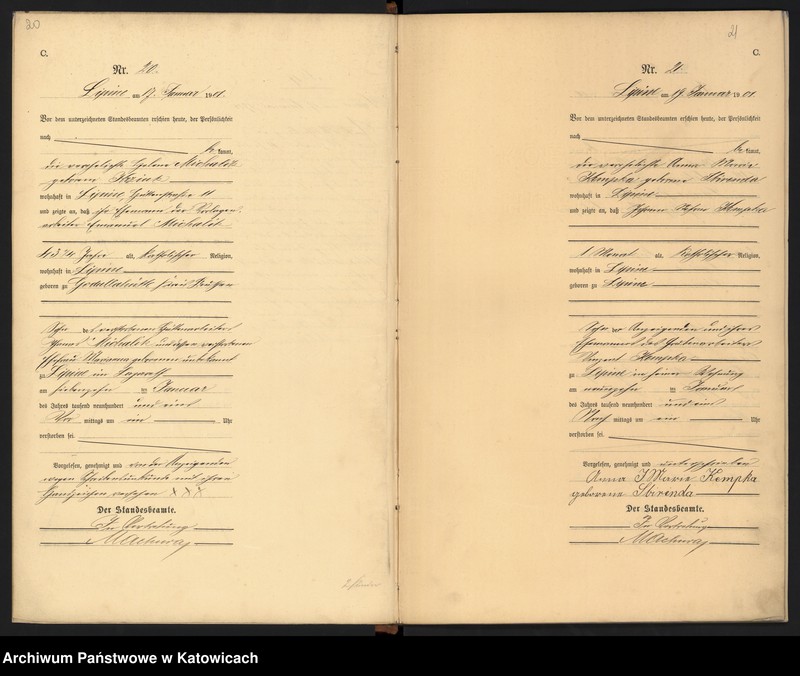 20
C.
Nr. 20.
Lipine am 17. Januar 1901.
Vor dem unterzeichneten Standesbeamten erschien heute, der Persönlichkeit
nach
kannt,
die verehelichte Helene Michalik
geborene
wohnhaft in Lipine, Hüttenstraße 11
und zeigte an, daß ihr Ehemann der
arbeiter Emanuel Michalik
43 3/4 Jahre alt, katholischer Religion,
wohnhaft in Lipine
geboren zu Godullahütte Kreis Beuthen
Sohn des verstorbenen Hüttenarbeiters
Michalik und dessen verstorbenen
Ehefrau Marianna geborenen unbekannt
zu Lipine im Lazareth
am siebenzehn ten Januar
des Jahres tausend neunhundert und eins
Vor mittags um ein Uhr
verstorben sei.
Vorgelesen, genehmigt und von der Anzeigenden
wegen Schreibensunkunde mit ihrem
Handzeichen versehen XXX
Der Standesbeamte.
In Vertretung
Machura
21
C.
Nr. 21.
Lipine am 19. Januar 1901.
Vor dem unterzeichneten Standesbeamten erschien heute, der Persönlichkeit
nach
kannt,
die verehelichte Anna Marie
Kempka geborene Skrenda
wohnhaft in Lipine
und zeigte an, daß Johann Kempka
1 Monat alt, katholischer Religion,
wohnhaft in Lipine
geboren zu Lipine
Sohn der Anzeigenden und ihres
Ehemannes des Grubenarbeiters
Vinzent Kempka
zu Lipine in seiner Wohnung
am neunzehn ten Januar
des Jahres tausend neunhundert und eins
Nach mittags um ein Uhr
verstorben sei.
Vorgelesen, genehmigt und unterschrieben
Anna Marie Kempka
geborene Skrenda
Der Standesbeamte.
In Vertretung
Machura
Archiwum Państwowe w Katowicach